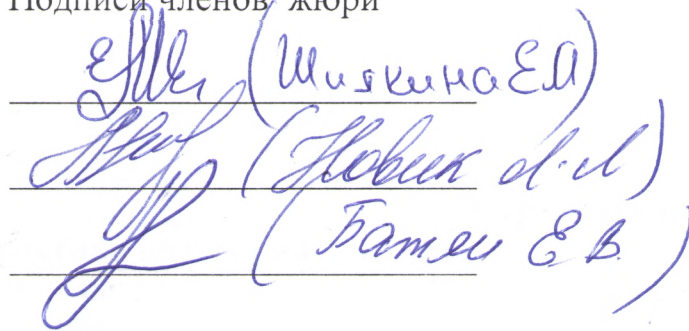 Подписи членов жюри
(Шиякина ЕМ)
(Новик Л.Л)
(Батян Е.В.)